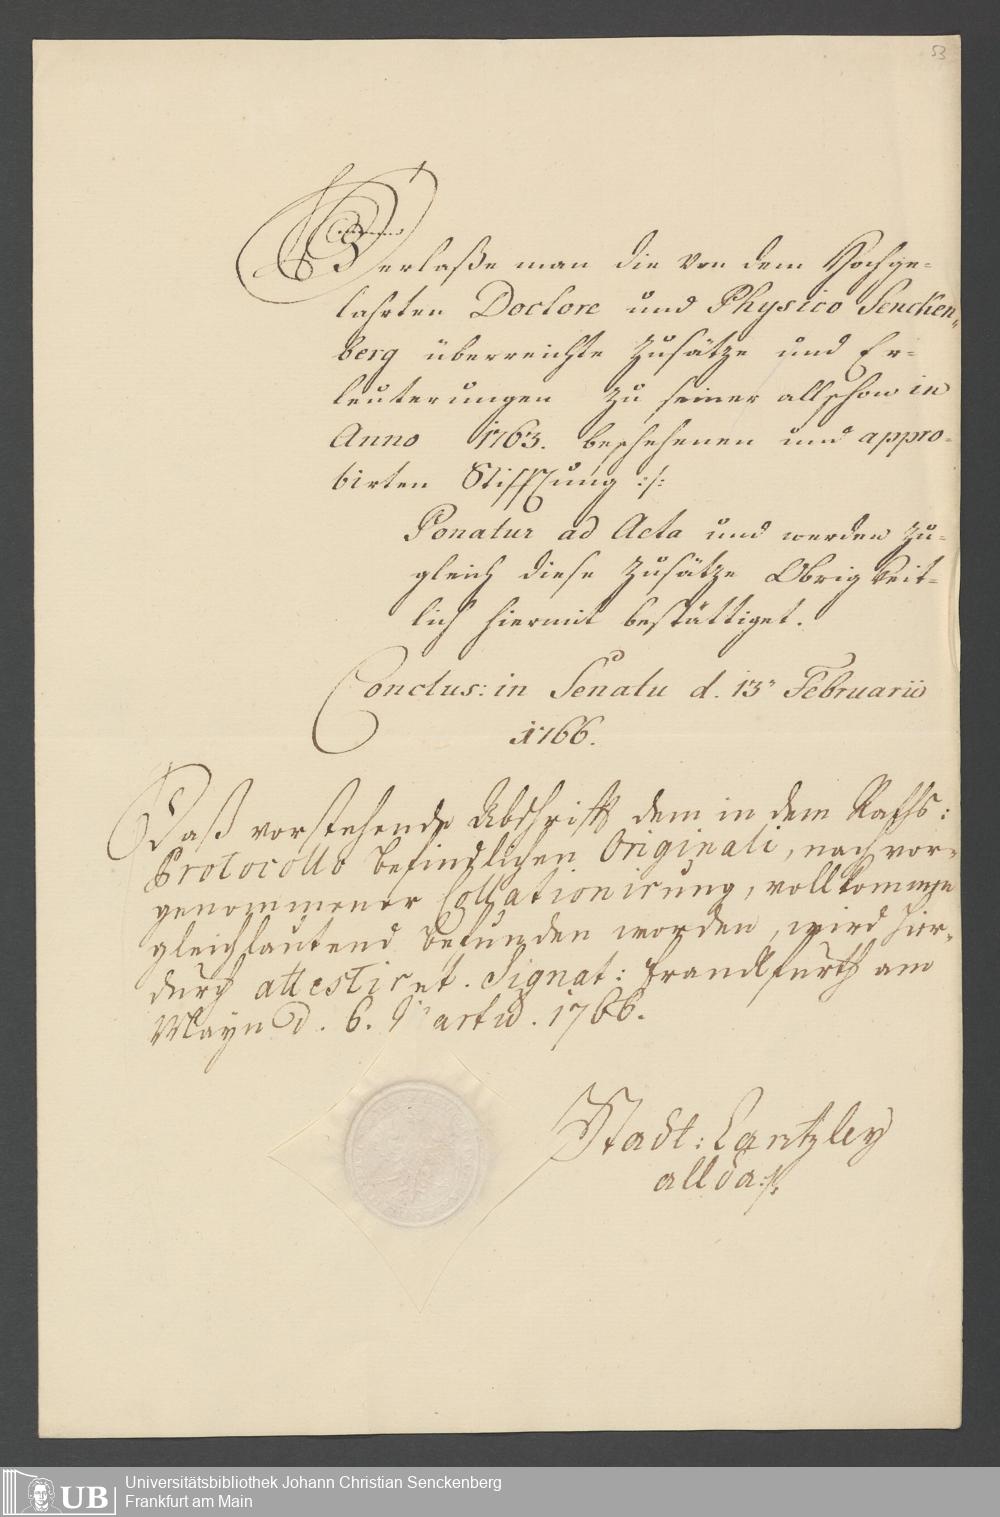 53
Verlaße man die von dem Hochge-
lahrten Doctore und Physico Sencken-
berg überreichte Zusätze und Er-
leuterungen zu seiner allschon in
Anno 1763. beschehenen und appro-
birten Stifftung :/:
Ponatur ad Acta und werden zu-
gleich diese Zusätze Obrigkeit-
lich hiermit bestättiget.
Conclus: in Senatu d. 13n Februarii
1766.
Daß vorstehende Abschrifft dem in dem Raths:
Protocollo befindlichen Originali, nach vor-
genommener Collationirung, vollkommen
gleichlautend befunden worden, wird hier-
durch attestiret. Signat: Franckfurth am
Mayn d. 6. Martii. 1766.
Stadt: Cantzley
allda:/:
UB
Universitätsbibliothek Johann Christian Senckenberg
Frankfurt am Main